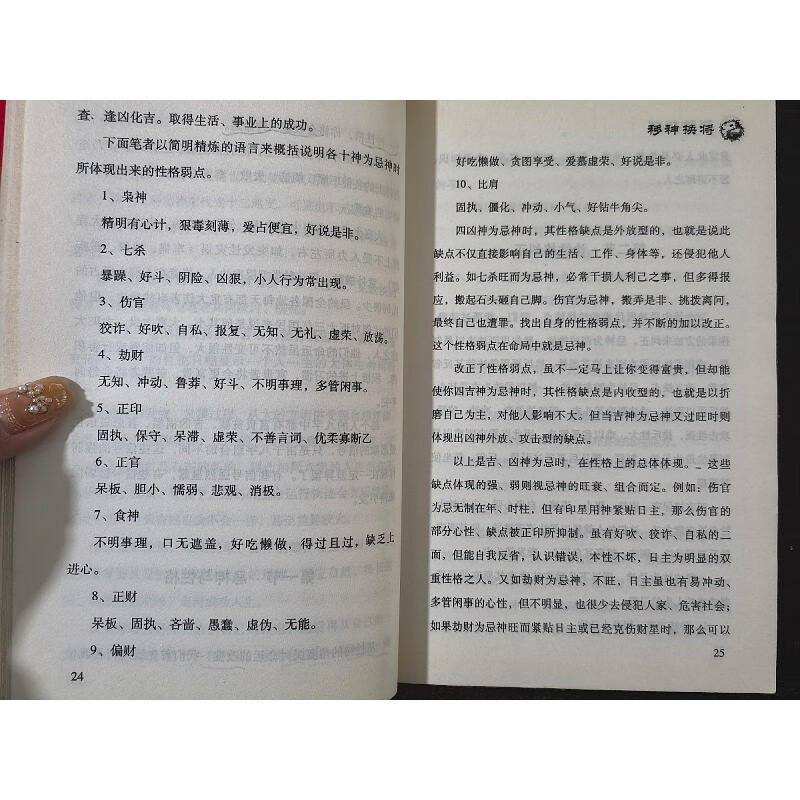 查、逢凶化吉。取得生活、事业上的成功。
下面笔者以简明精炼的语言来概括说明各十神为忌神时
所体现出来的性格弱点。
1、枭神
精明有心计，狠毒刻薄，爱占便宜，好说是非。
2、七杀
暴躁、好斗、阴险、凶狠，小人行为常出现。
3、伤官
狡诈、好吹、自私、报复、无知、无礼、虚荣、放荡。
4、劫财
无知、冲动、鲁莽、好斗、不明事理，多管闲事。
5、正印
固执、保守、呆滞、虚荣、不善言词、优柔寡断乙
6、正官
呆板、胆小、懦弱、悲观、消极。
7、食神
不明事理，口无遮盖，好吃懒做，得过且过，缺乏上
进心。
8、正财
呆板、固执、吝啬、愚蠢、虚伪、无能。
9、偏财
24
移神换将
好吃懒做、贪图享受、爱慕虚荣、好说是非。
10、比肩
固执、僵化、冲动、小气、好钻牛角尖。
四凶神为忌神时，其性格缺点是外放型的，也就是说此
缺点不仅直接影响自己的生活、工作、身体等，还侵犯他人
利益。如七杀旺而为忌神，必常干损人利己之事，但多得报
应，搬起石头砸自己脚。伤官为忌神，搬弄是非、挑拨离间，
最终自己也遭罪。找出自身的性格弱点，并不断的加以改正。
这个性格弱点在命局中就是忌神。
改正了性格弱点，虽不一定马上让你变得富贵，但却能
使你四吉神为忌神时，其性格缺点是内收型的，也就是以折
磨自己为主，对他人影响不大。但当吉神为忌神又过旺时则
体现出凶神外放、攻击型的缺点。
以上是吉、凶神为忌时，在性格上的总体体现。_这些
缺点体现的强、弱则视忌神的旺衰、组合而定。例如：伤官
为忌无制在年、时柱，但有印星用神紧贴日主，那么伤官的
部分心性、缺点被正印所抑制。虽有好吹、狡诈、自私的二
面，但能自我反省，认识错误，本性不坏，日主为明显的双
重性格之人。又如劫财为忌神，不旺，日主虽也有易冲动、
多管闲事的心性，但不明显，也很少去侵犯人家、危害社会；
如果劫财为忌神旺而紧贴日主或已经克伤财星时，那么可以
25